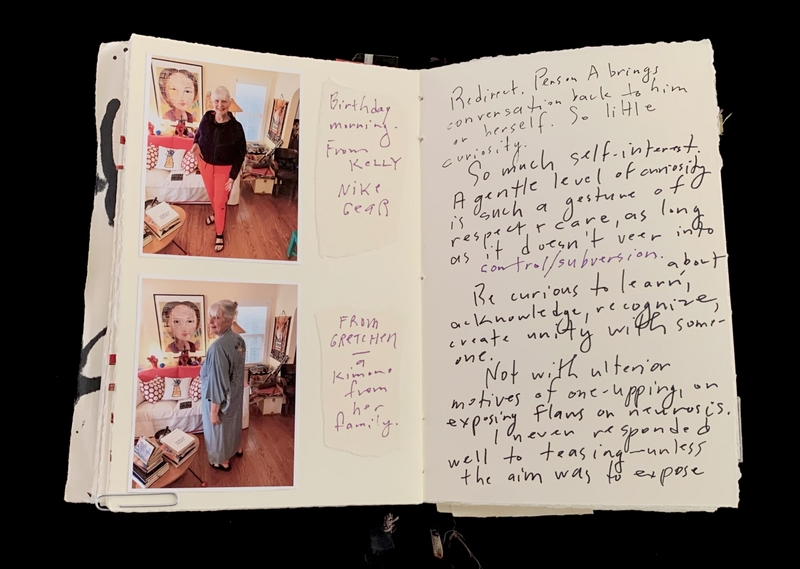 Birthday
morning.
From
KELLY
NIKE
GEAR
FROM
GRETCHEN
a
Kimono
from
her
family.
Redirect. Person A brings
conversation back to him
or herself. So little
curiosity.
So much self-interest.
A gentle level of curiosity
is such a gesture of
respect & care, as long
as it doesn't veer into
control/subversion.
Be curious to learn, about
acknowledge, recognize,
create unity with some-
one.
Not with ulterior
motives of one-upping, or
exposing flaws or neurosis.
I never responded
well to teasing—unless
the aim was to expose